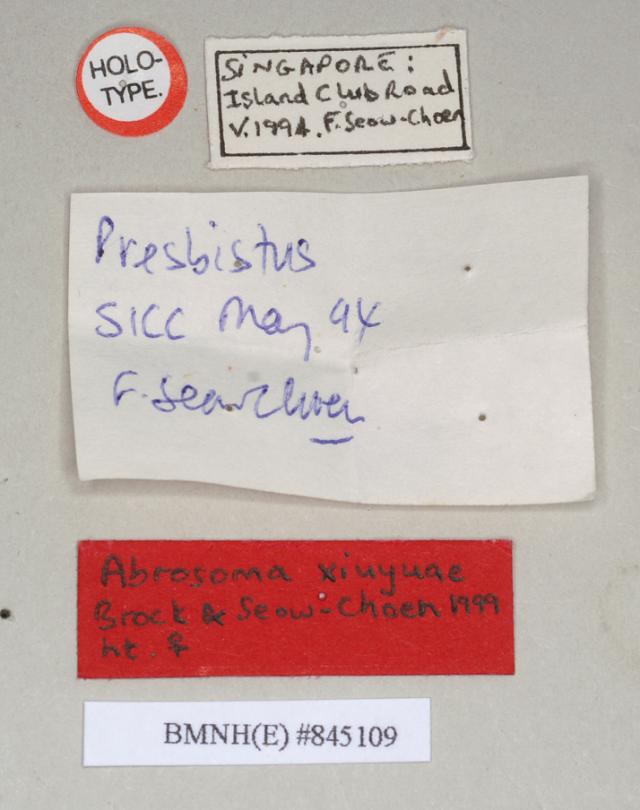 HOLO-
TYPE.
SINGAPORE:
Island Club Road
V.1994. F. Seow-Choen
Presbistus
SICC May 94
F. Seow Choen
Abrosoma xiuyuae
Brock & Seow-Choen 1999
ht. ♀
BMNH(E) #845109